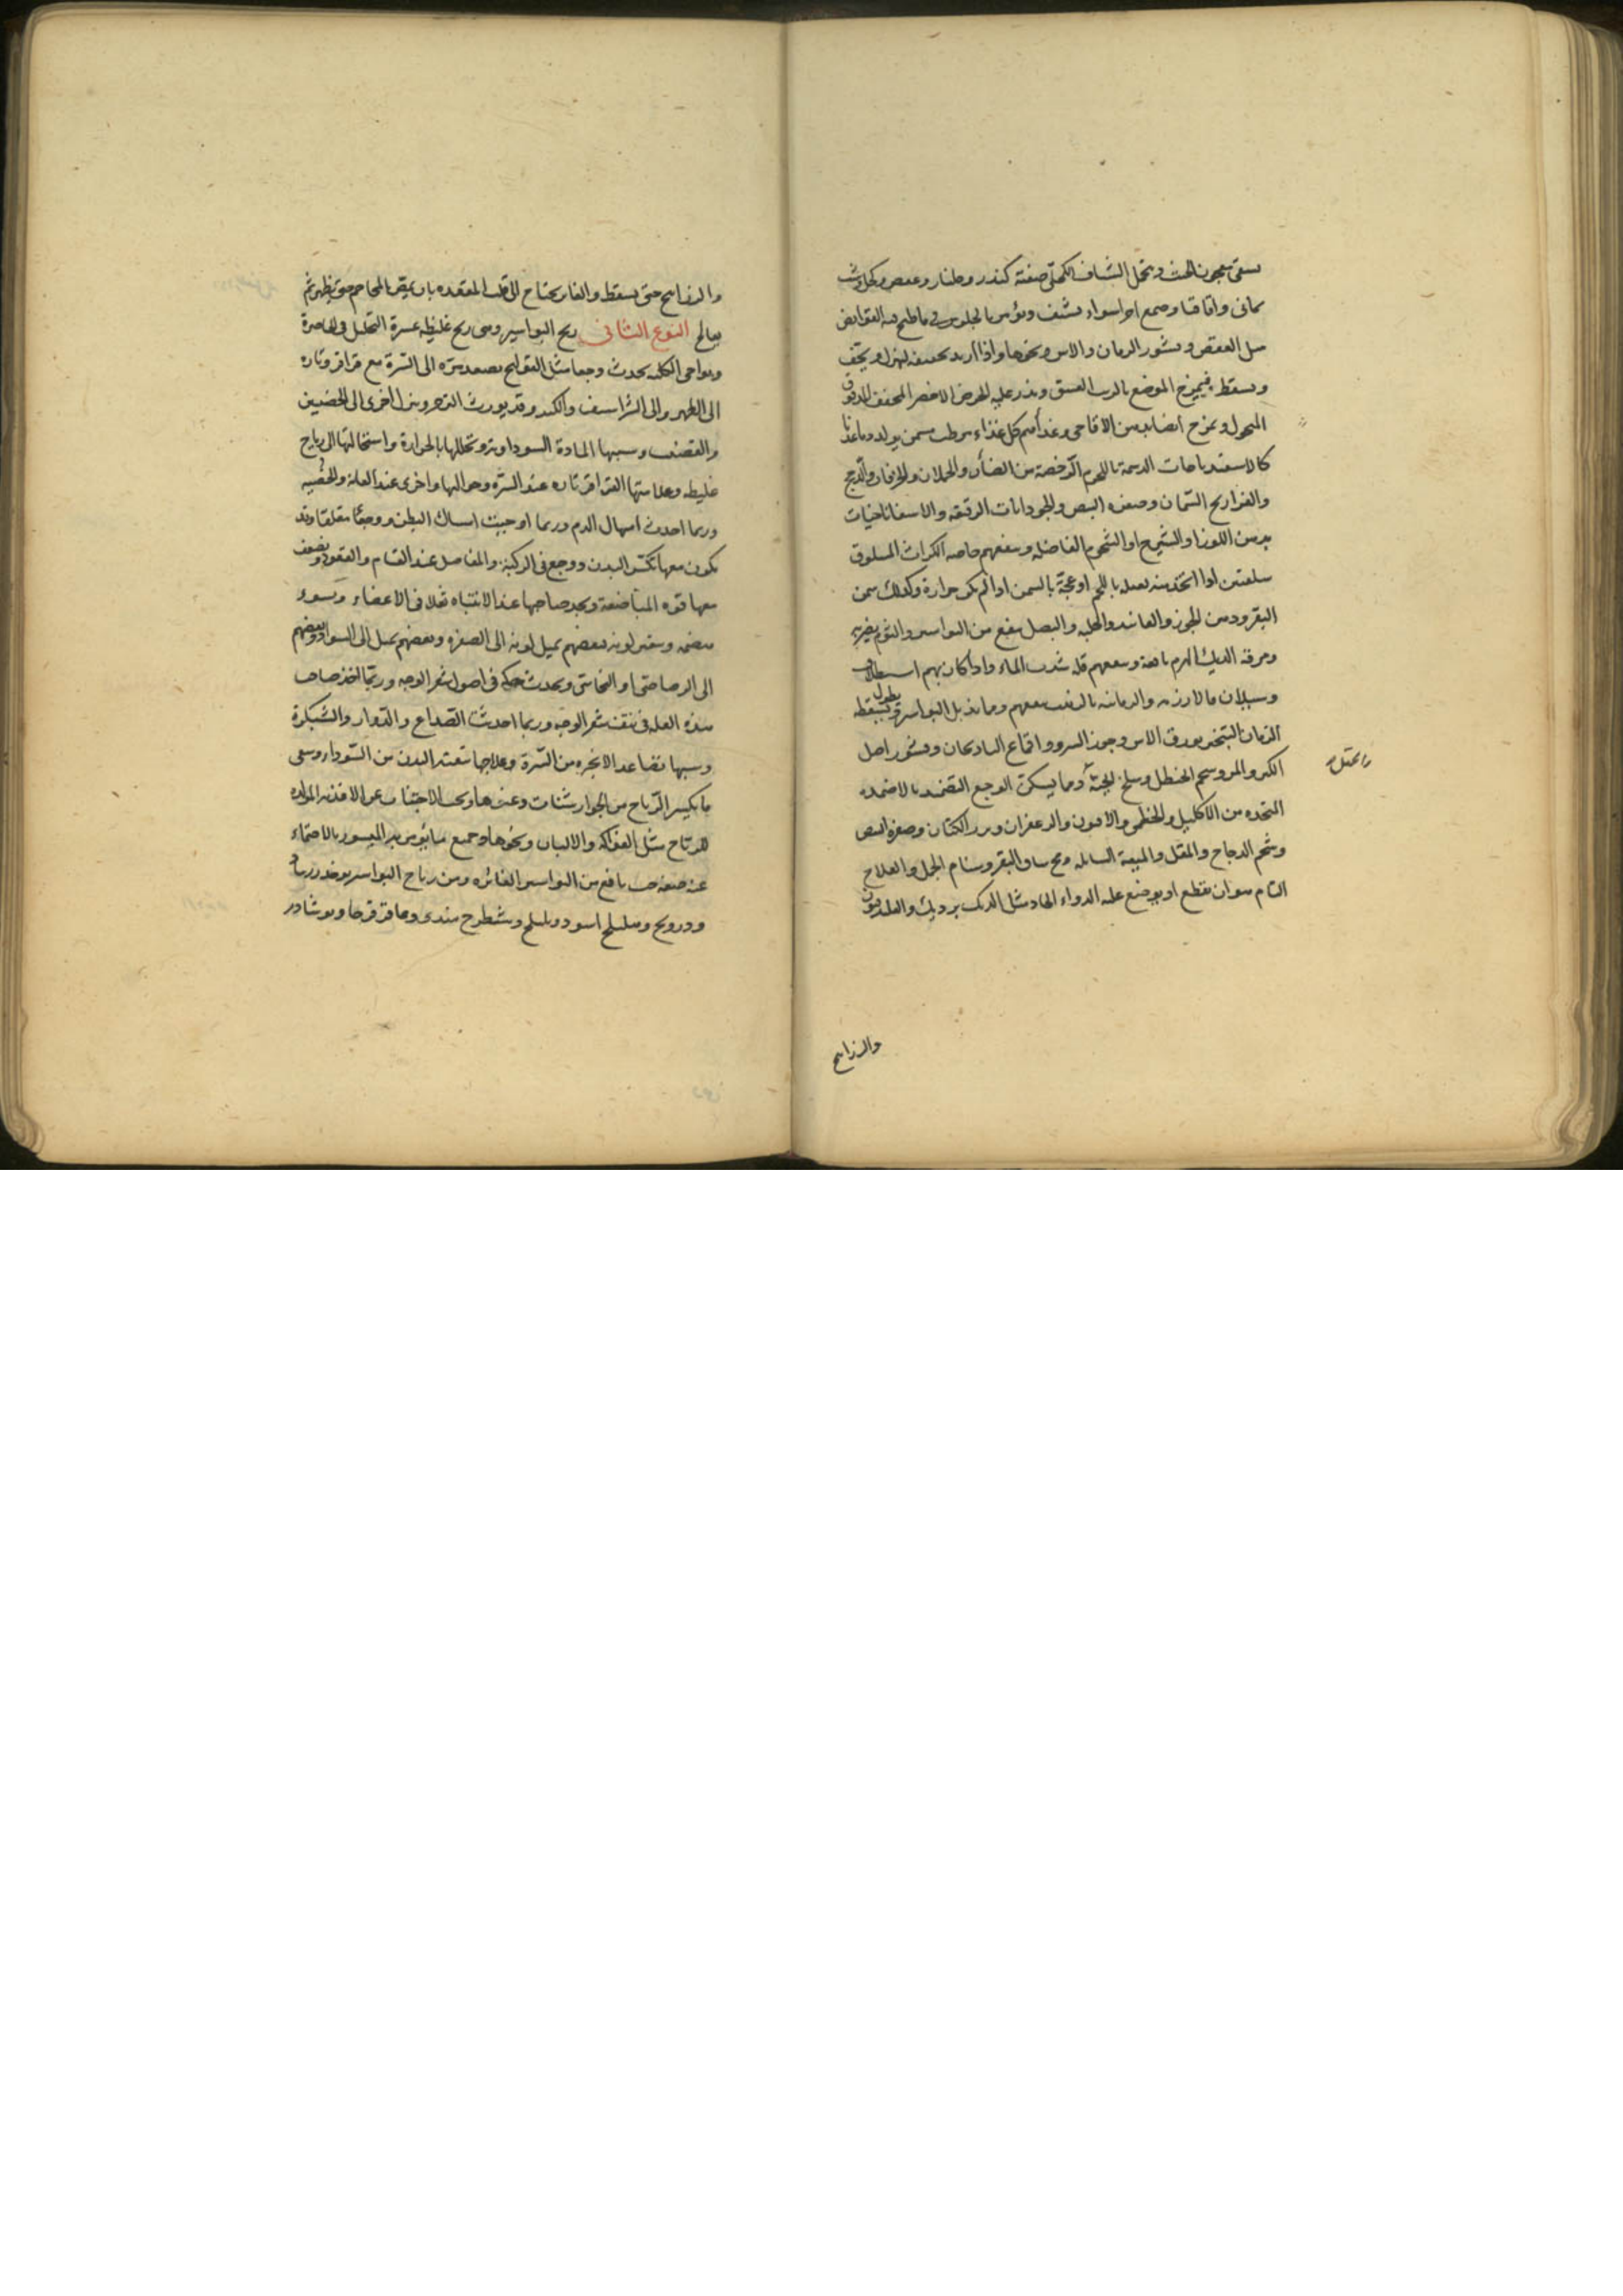 يسقى معجون الخبث ويتحمل الشياف الكحلى صفته كندر وجلنار وعفص وكحل وشب
يمانى واقاقيا وصمغ اجزا سواء يشيف ويؤمر بالجلوس فى ما طبخ فيه القوابض
مثل العفص وقشور الرمان والاس ونحوها واذا اريد تجفيفه ليهزل ويجف
ويسقط فيمرخ الموضع بالزيت العتيق ويذر عليه الحرض الاخضر المجفف المدقوق
المنخول ويمزج ايضا بدهن الاقاحى وغذاءهم كل غذاء مرطب مسمن يولد دما غذيا
كالاسفيدباجات الدسمة باللحوم الرخصة من الضأن والحملان والخرفان والدجج
والفراريج السمان وصفره البيض والجوذابات الرقيقه والاسفاناخيات
بدهن اللوز او الشيرج او الشحوم الفاضله وينفعهم خاصه الكراث المسلوق
سلقتين اذا اتخذ منه بعده باللحم او عجة بالسمن اذا لم يكن حرارة وكذلك سمن
البقر ودهن الجوز والفانيد والحلبه والبصل ينفع من البواسير والثوم يضر به
ومرقة الديك الهرم نافعة وينفعهم قله شرب الماء واذا كان بهم استطلاق
وسيلان فالارزيه والرمانيه بالزبيب ينفعهم ومما يذبل البواسير ويسقطه بطول
الزمان التبخير بورق الاس وجوز السرو واقماع الباذنجان وقشور اصل
الكبر والمر وشحم الحنظل وسلخ الحية ومما يسكن الوجع التضميد بالاضمده
المتخذه من الاكليل والخطمى والافيون والزعفران وبزر الكتان وصفرة البيض
وشحم الدجاج والمقل والميعة السائله ومخ ساق البقر وسنام الجمل والعلاج
التام هو ان يقطع او يوضع عليه الدواء الحاد مثل الديك برديك والفلدفيون
والزرانيخ
والزرانيخ حتى يسقط والغائر يحتاج الى قلب المقعده بان يمص بالمحاجم حتى يظهر ثم
يعالج النوع الثانى ريح البواسير وهى ريح غليظه عسرة التحلل فى الخاصرة
ونواحى الكليه يحدث وجعا مثل القولنج يصعد مره الى السرة مع قراقر وتاره
الى الظهر والى الشراسيف والكبد وقد يورث الزحير وينزل اخرى الى الخصيين
والقضيب وسببها المادة السوداويه وتحللها بالحرارة واستحالتها الى رياح
غليظه وعلامتها القراقر تاره عند السرة وحواليها واخرى عند العانه والخصيه
وربما احدث اسهال الدم وربما اوجبت امساك البطن ووجعا مقلقا وقد
يكون معها تكسر البدن ووجع فى الركبة والمفاصل عند القيام والقعود ويضعف
معها قوه المباضعة ويجد صاحبها عند الانتباه ثقلا فى الاعضاء ويسوء
هضمه ويتغير لونه فبعضهم يميل لونه الى الصفره وبعضهم يميل الى السواد وبعضهم
الى الرصاصى او النحاسى ويحدث حكه فى اصول شعر الوجه وربما اخذ صاحب
هذه العله فى نتف شعر الوجه وربما احدثت الصداع والدوار والشبكرة
وسببها تصاعد الابخره من السرة وعلاجها تنقيه البدن من السوداء وسقى
ما يكسر الرياح من الجوارشنات وغيرها ويجب الاجتناب عن الاغذيه المولده
للرياح مثل الفواكه والالبان ونحوها وجميع ما يؤمر به المبسور بالاحتماء
عنه صفة حب نافع من البواسير الغائره ومن رياح البواسير يوخذ زرنباد
ودرونج وهليلج اسود وبليلج وشيطرج هندى وعاقر قرحا ونوشادر